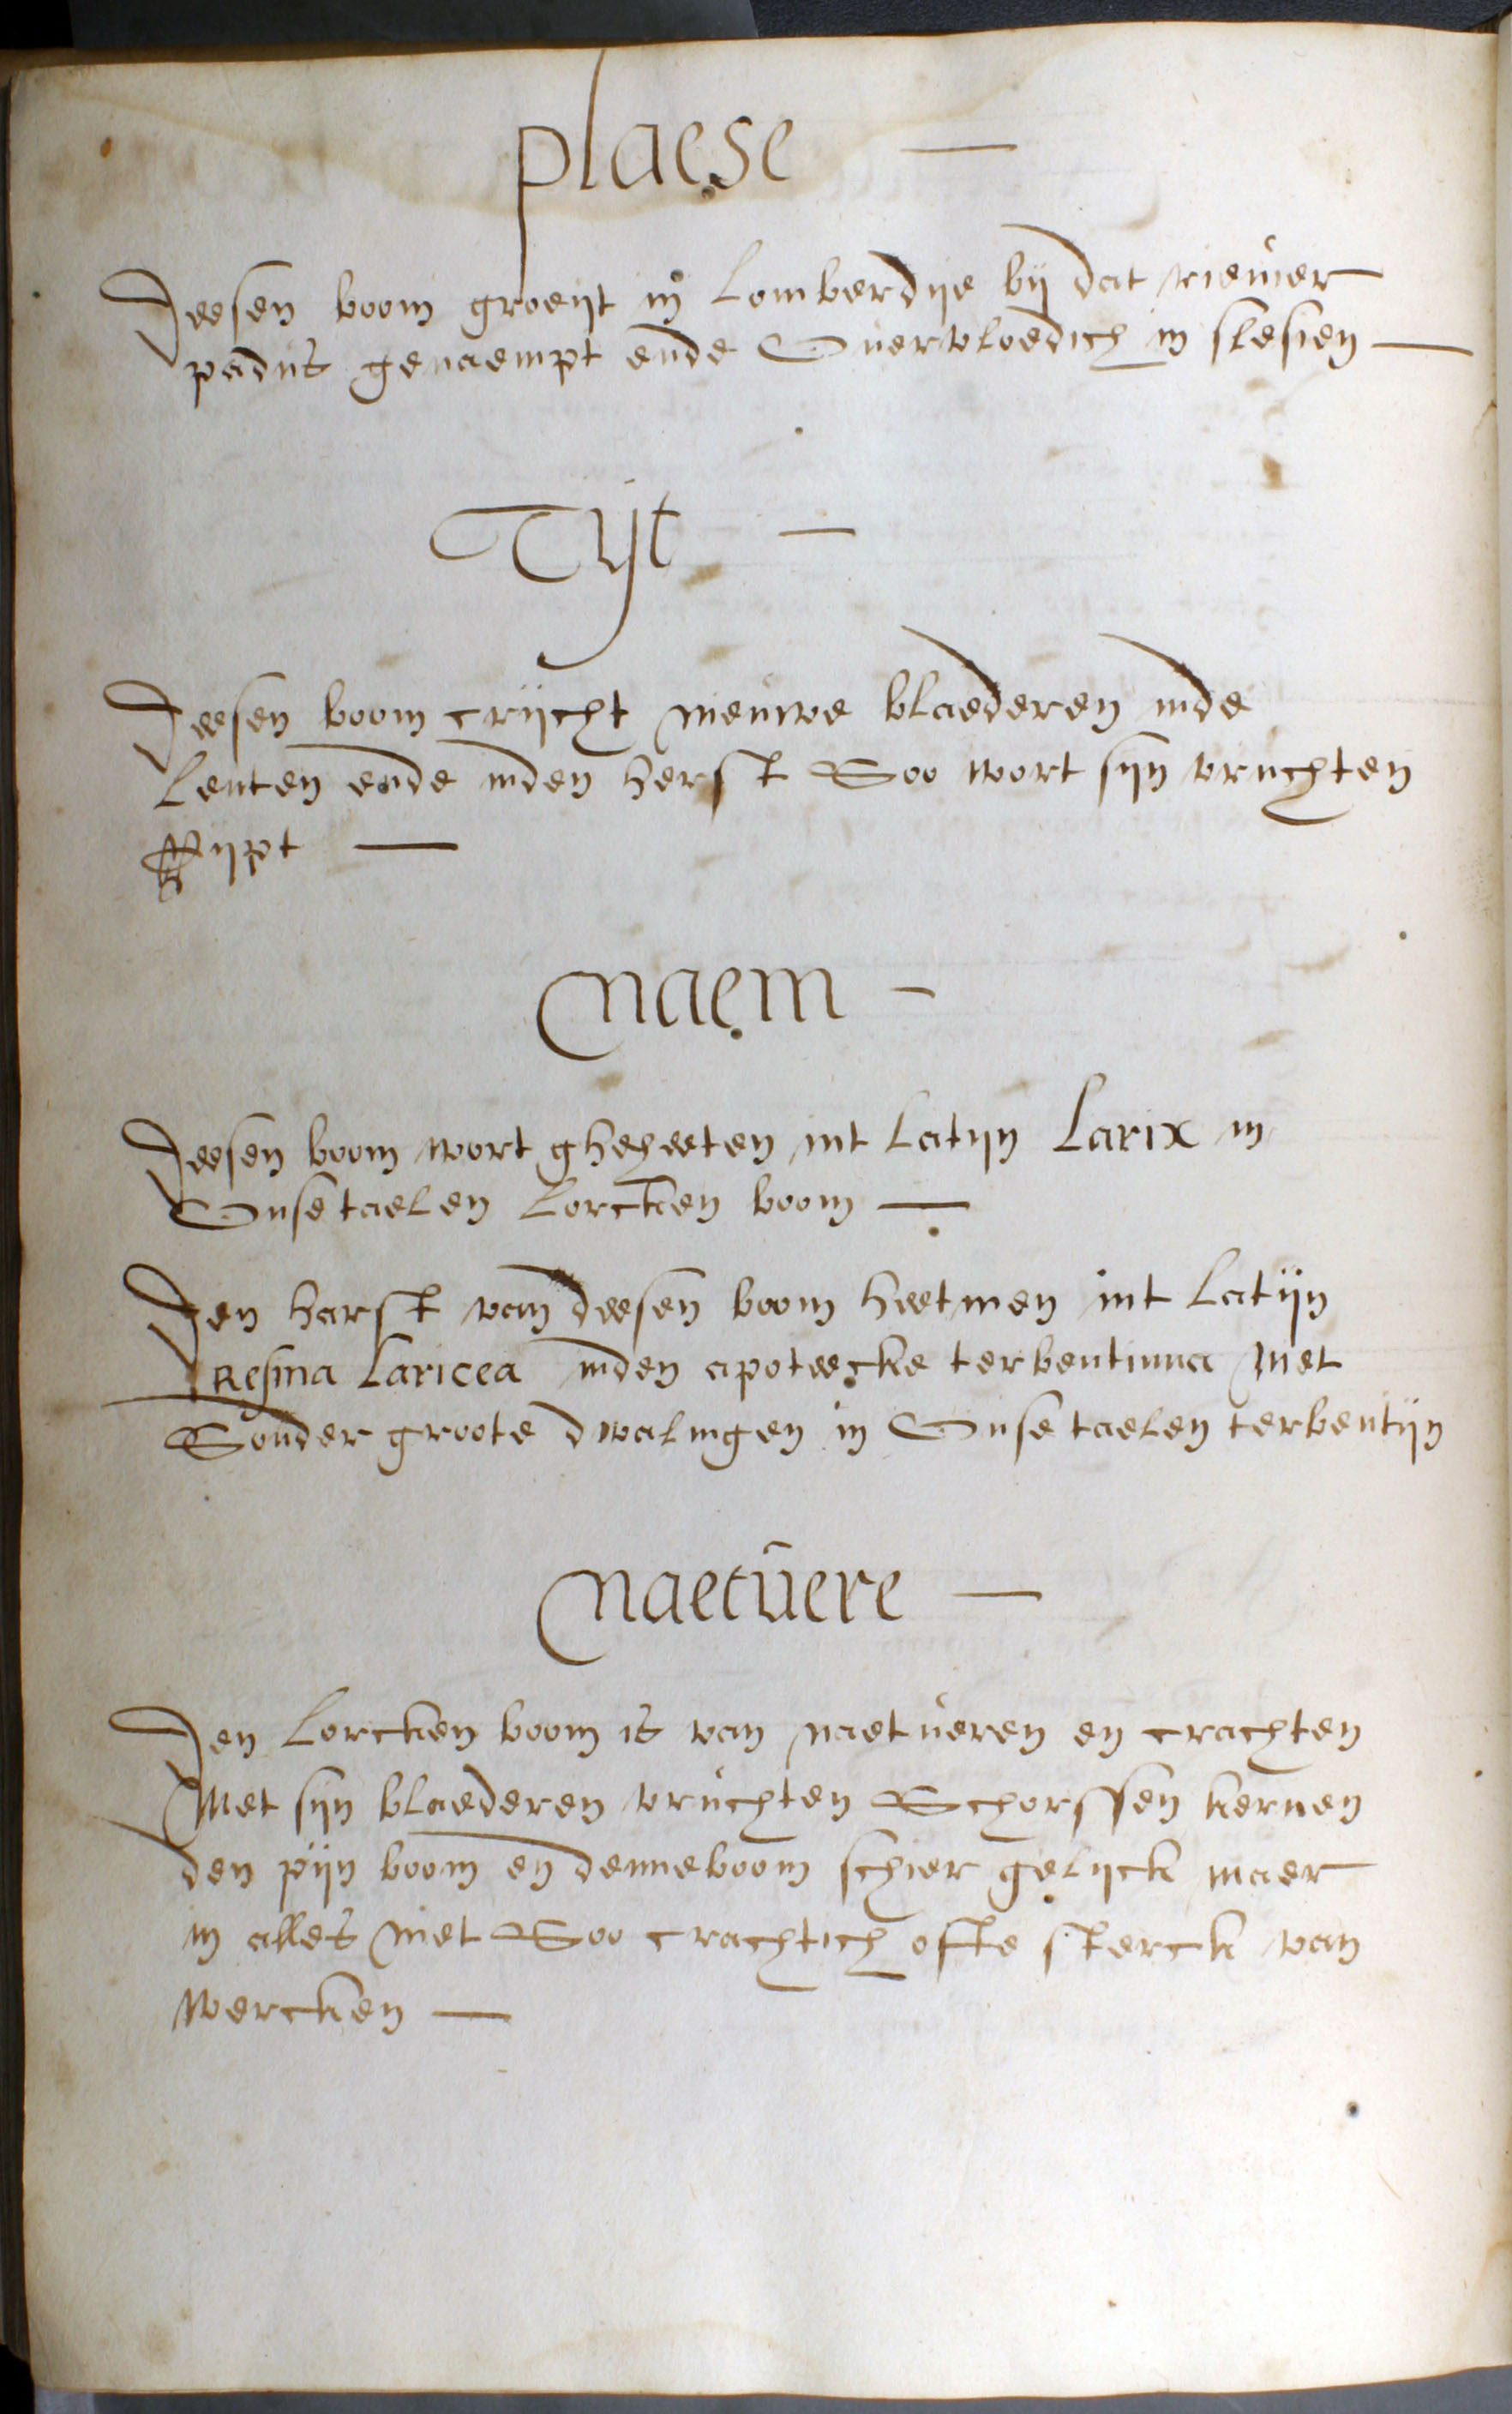 plaese —
Deesen boom groeijt in Lomberdije bij dat rievier
padus genaempt ende Overvloedich in slesien —
Tijt —
Deesen boom crijcht nieuwe blaederen inde
Lenten ende inden herst Soo wort sijn vruchten
Rijpt —
naem –
Deesen boom wort gheheeten int Latijn Larix in
Onse taelen Lorcken boom —
Den harst van deesen boom heetmen int Latijn
Resina Laricea inden apoteecke terbentinna niet
Sonder groote dwalingen in Onse taelen terbentijn
naetuere —
Den Lorcken boom is van naetueren en crachten
Met sijn blaederen vruchten Schorssen kernen
den pijn boom en denneboom schier gelijck maer
in alles niet Soo crachtich ofte sterck van
wercken —